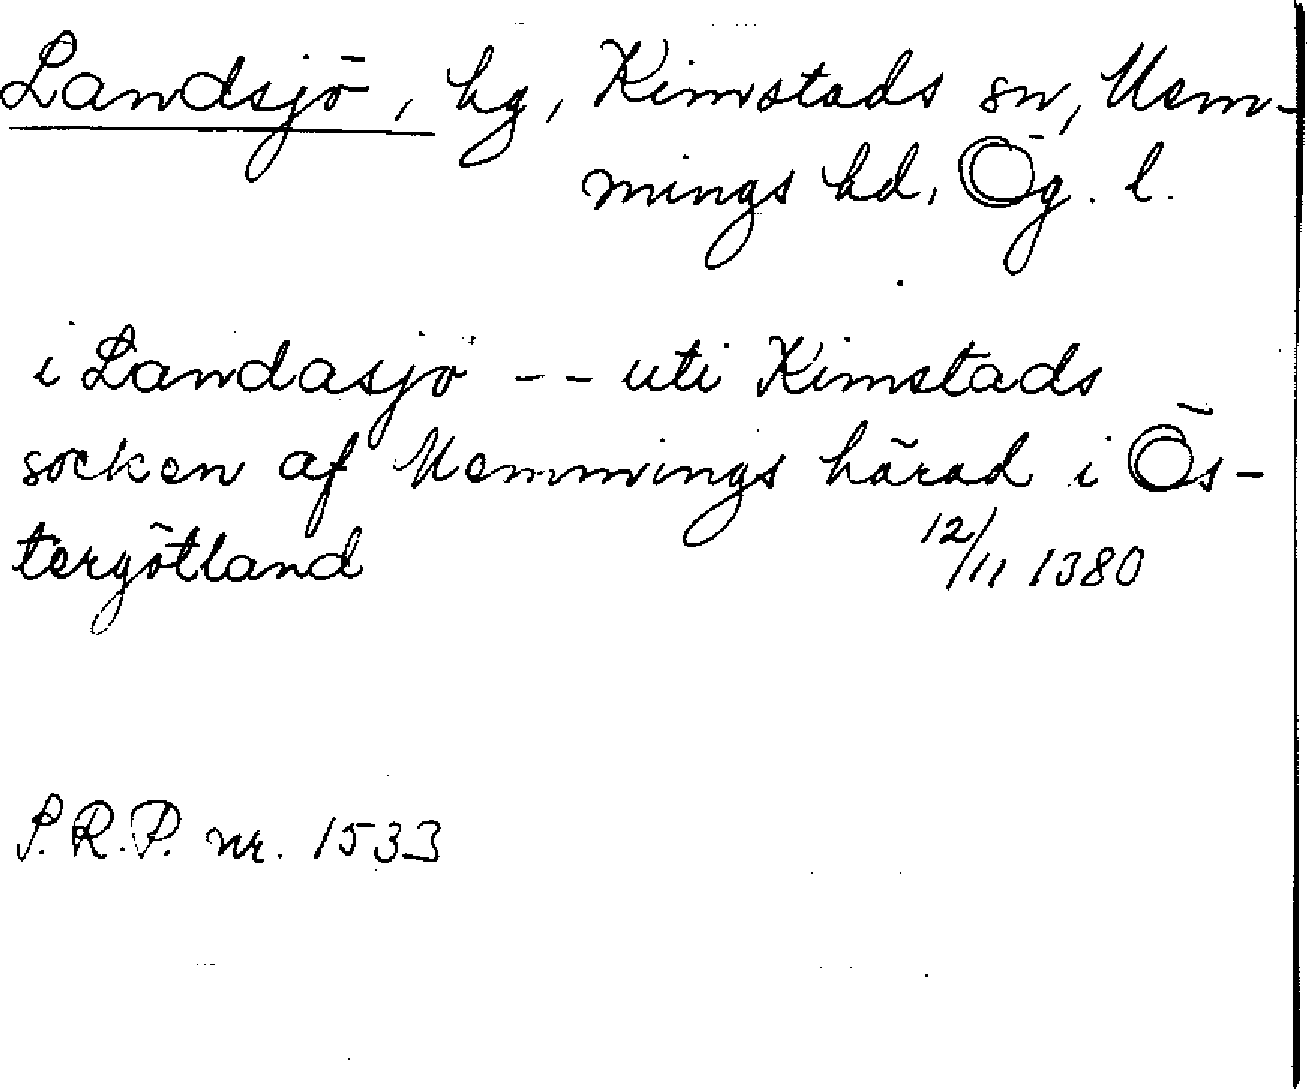 Landsjö, hg, Kimstads sn, Mem-
mings hd, Ög. l.
i Landasjö -- uti Kimstads
socken af Memmings härad i Ös-
tergötland 12/11 1380
S.R.P. nr. 1533